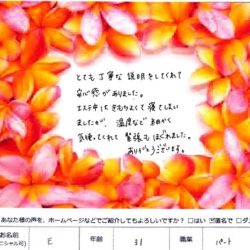 とても丁寧な説明をしてくれて
安心感がありました。
エステ中はきもちよくて寝てしまい
ましたが、温度など細かく
気使ってくれて緊張もほぐれました。
ありがとうございます。
あなた様の声を、ホームページなどでご紹介してもよろしいですか？ □はい ☑匿名で □ダ
お名前 E 年齢 31 職業 パート
ニシャル可)